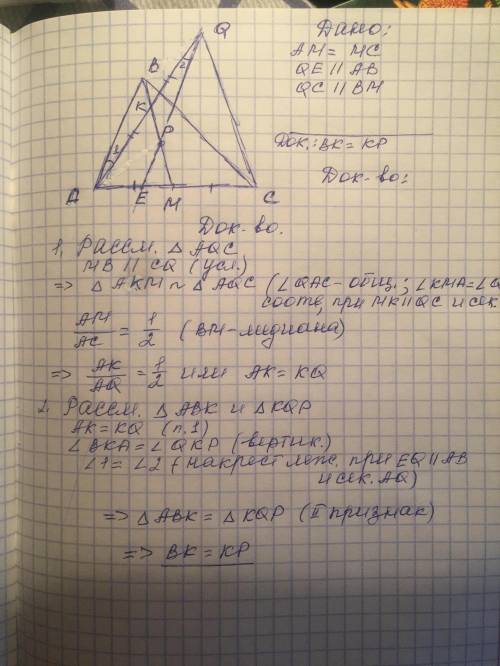 Дано:
AM = MC
QE || AB
QC || BM
Док.: BK = KP
Док-во:
Q
B
2
K
P
1
A
E
M
C
Док-во.
1. Рассм. △ AQC
MB || CQ (усл.)
=> △ AKM ~ △ AQC (∠QAC - общ.; ∠KMA = ∠Q
соотв, при MK||QC и сек.
AM/AC = 1/2 (BM - медиана)
=> AK/AQ = 1/2 или AK = KQ
2. Рассм. △ ABK и △ KQP
AK = KQ (п.1)
∠BKA = ∠QKP (-вертик.)
∠1 = ∠2 (накрест леж. при EQ || AB
и сек. AQ)
=> △ ABK = △ KQP (II признак)
=> BK = KP